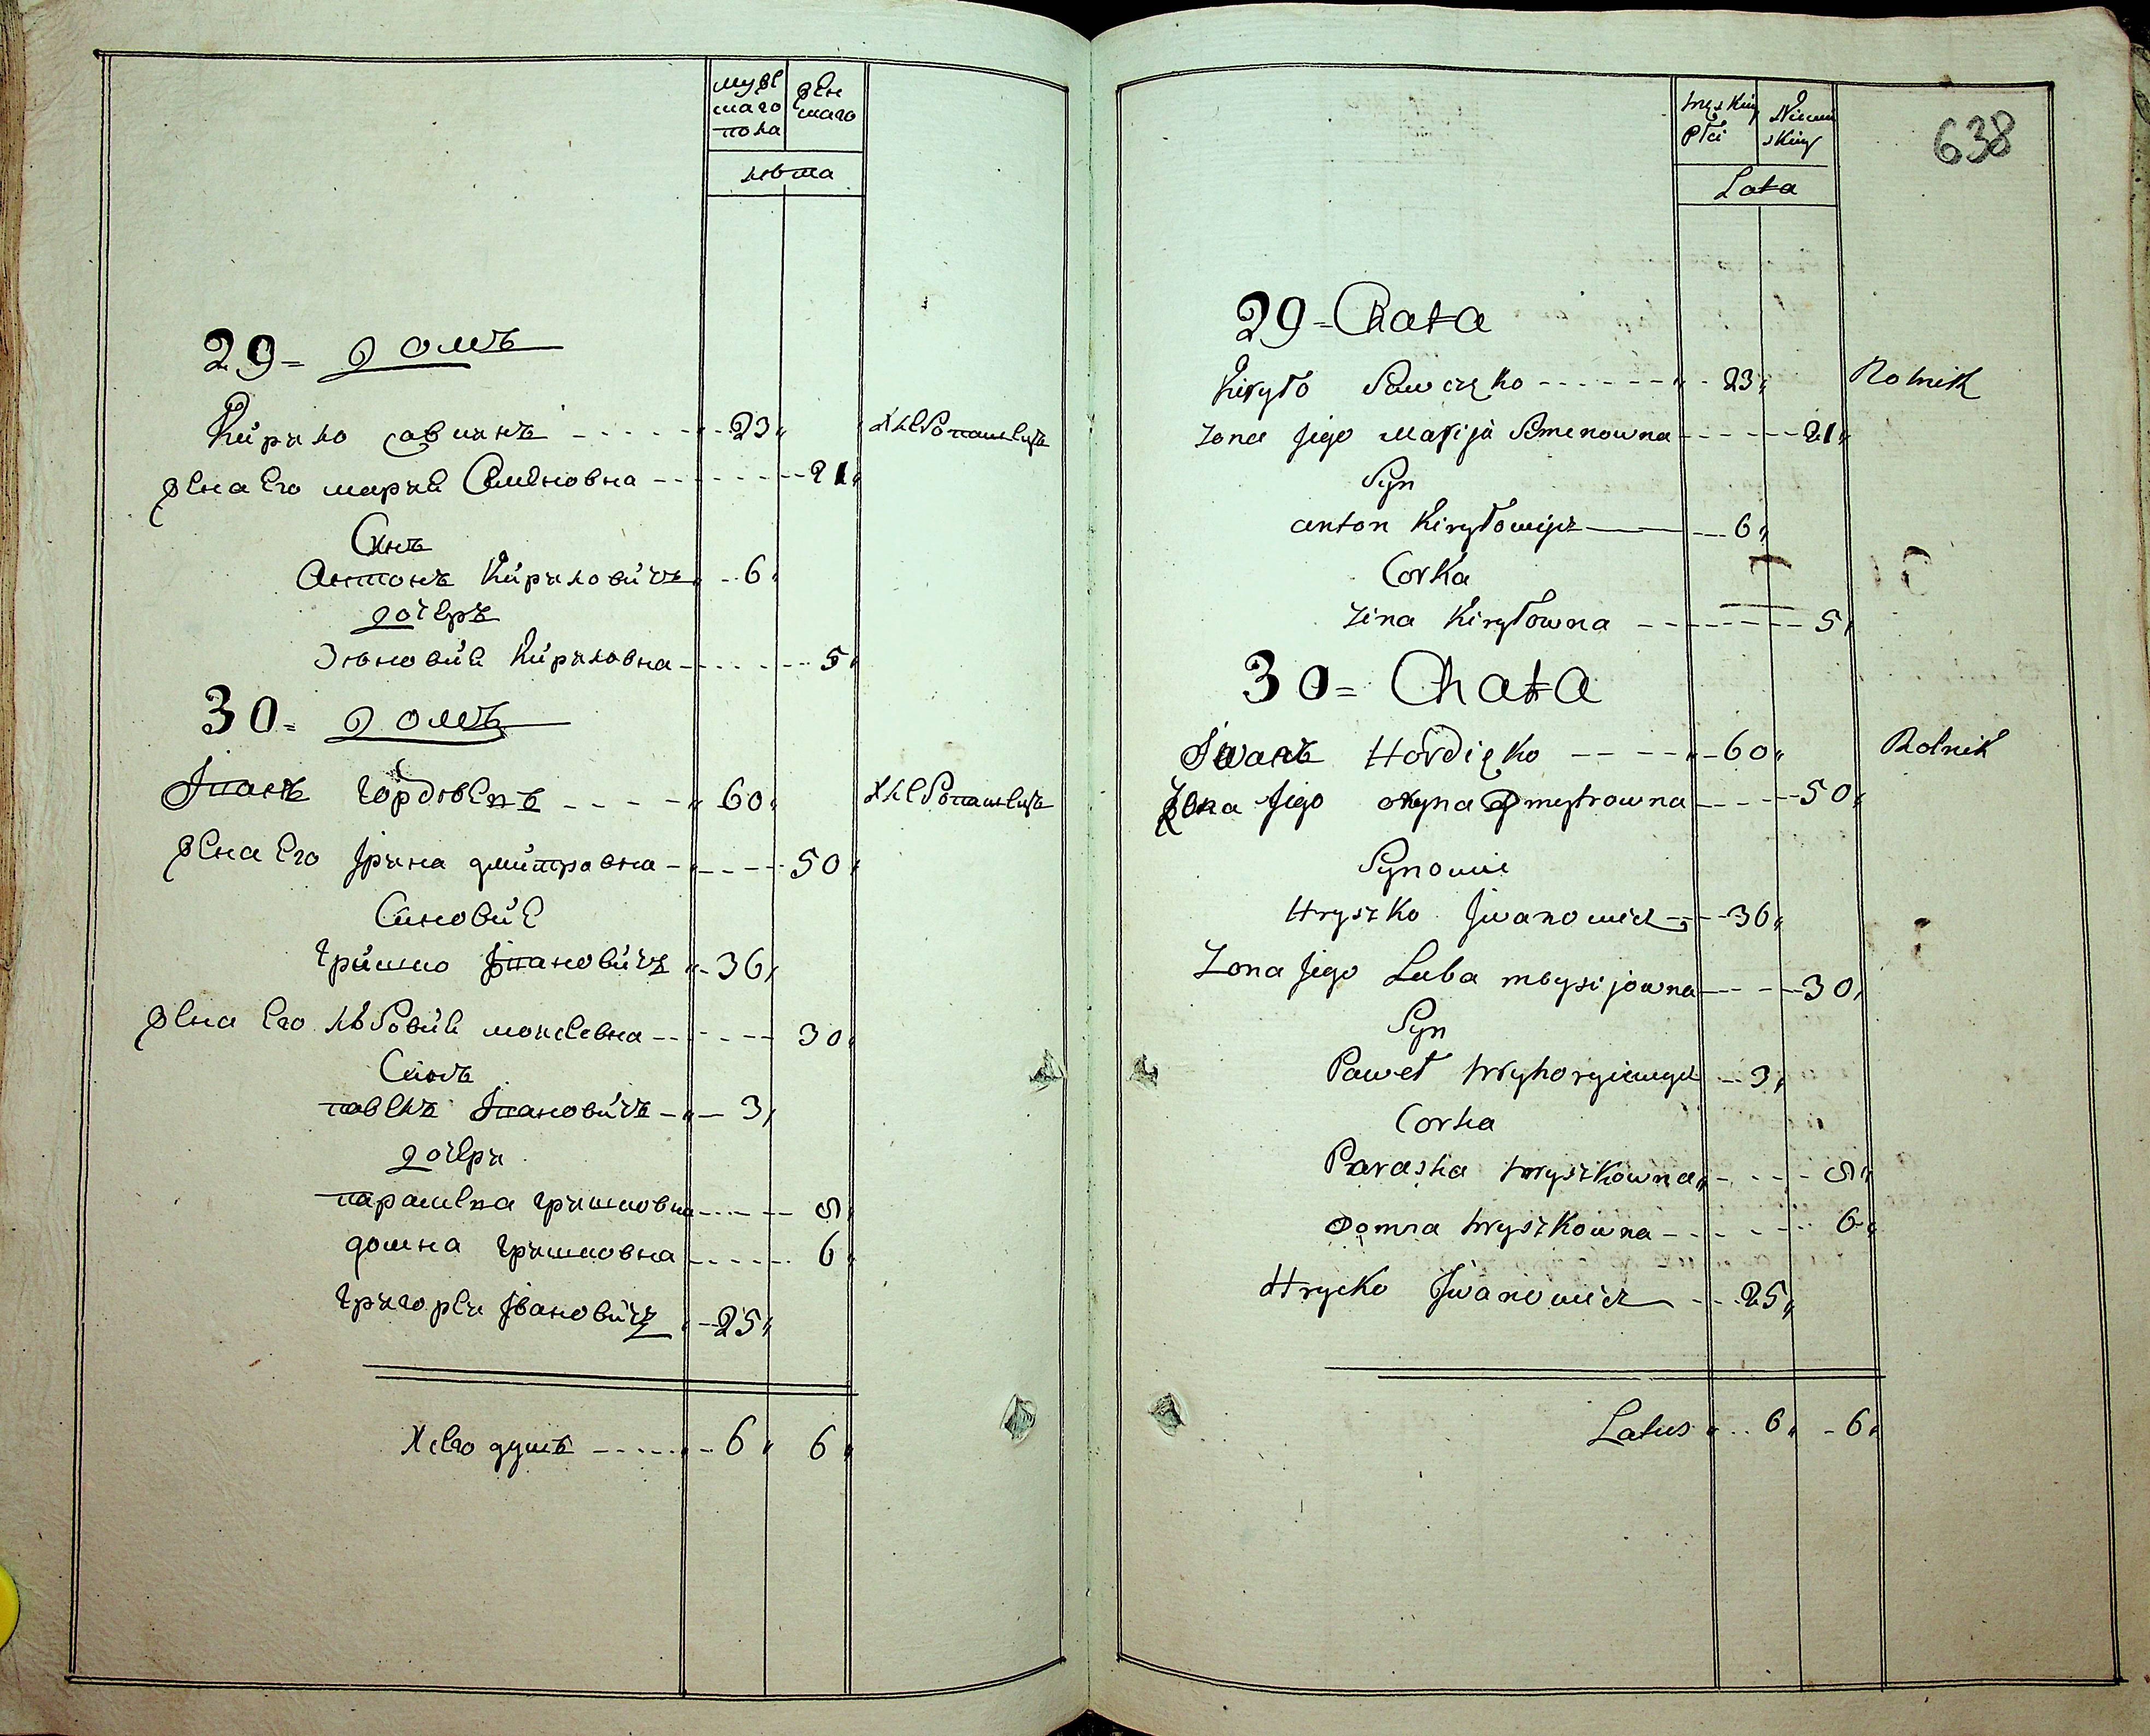 мужескаго пола
женскаго
лѣта
29 = домъ
Кирило савчикъ - - - - - - 23
жена Его мария Семеновна - - - - - - 21
Синъ
Антонъ Кириловичъ - - 6
дочеръ
Зѣновия Кириловна - - - - - - 5
30 = домъ
Іванъ гордѣекъ - - - - 60
жена Его Ірина дмитровна - - - - - 50
Синовие
гришко Івановичъ - 36
жена Его Любовия моисеевна - - - - - 30
Синъ
павелъ Івановичъ - - 3
дочери
парашека гришковна - - - - 8
домна гришковна - - - - - 6
григорей Івановичъ - 25
Хлебопашецъ
Хлебопашецъ
Всего душъ - - - - - 6 6
638
męskiey płci
Niewieskiey
Lata
29 = Chata
Kiryło Sawczęko - - - - - - 23 Rolnik
Zona Jego Maryja Semenowna - - - - - 21
Syn
anton Kiryłowicz - - - 6
Corka
Zina Kiryłowna - - - - - - 5
30 = Chata
Iwanъ Hordięko - - - - - 60 Rolnik
Zona Jego oryna Dmytrowna - - - - 50
Synowie
Hryszko Jwanowicz - - - 36
Zona Jego Luba moysijowna - - - - 30
Syn
Paweł hryhoryiewycz - - 3
Corka
Paraska hryszkowna - - - - 8
Domna hryszkowna - - - - - 6
Hrycko Jwanowicz - - 25
Latus - - 6 - 6